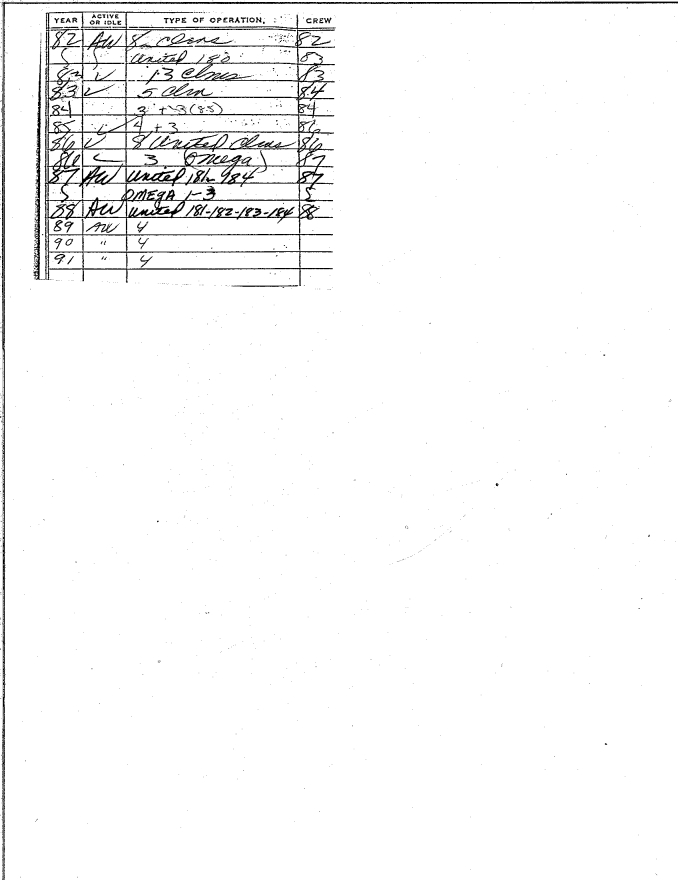 YEAR ACTIVE OR IDLE TYPE OF OPERATION. CREW
82 AW 8 Clms 82
United 180 83
83 ✓ 13 Clms 83
83 ✓ 5 Clm 84
84 3 + 3 (85) 84
85 ✓ 4 + 3 86
86 ✓ 8 United Clms 86
86 3 Omega) 87
87 AW United 181-984 87
OMEGA 1-3
88 AW United 181-182-183-184 88
89 AW 4
90 " 4
91 " 4